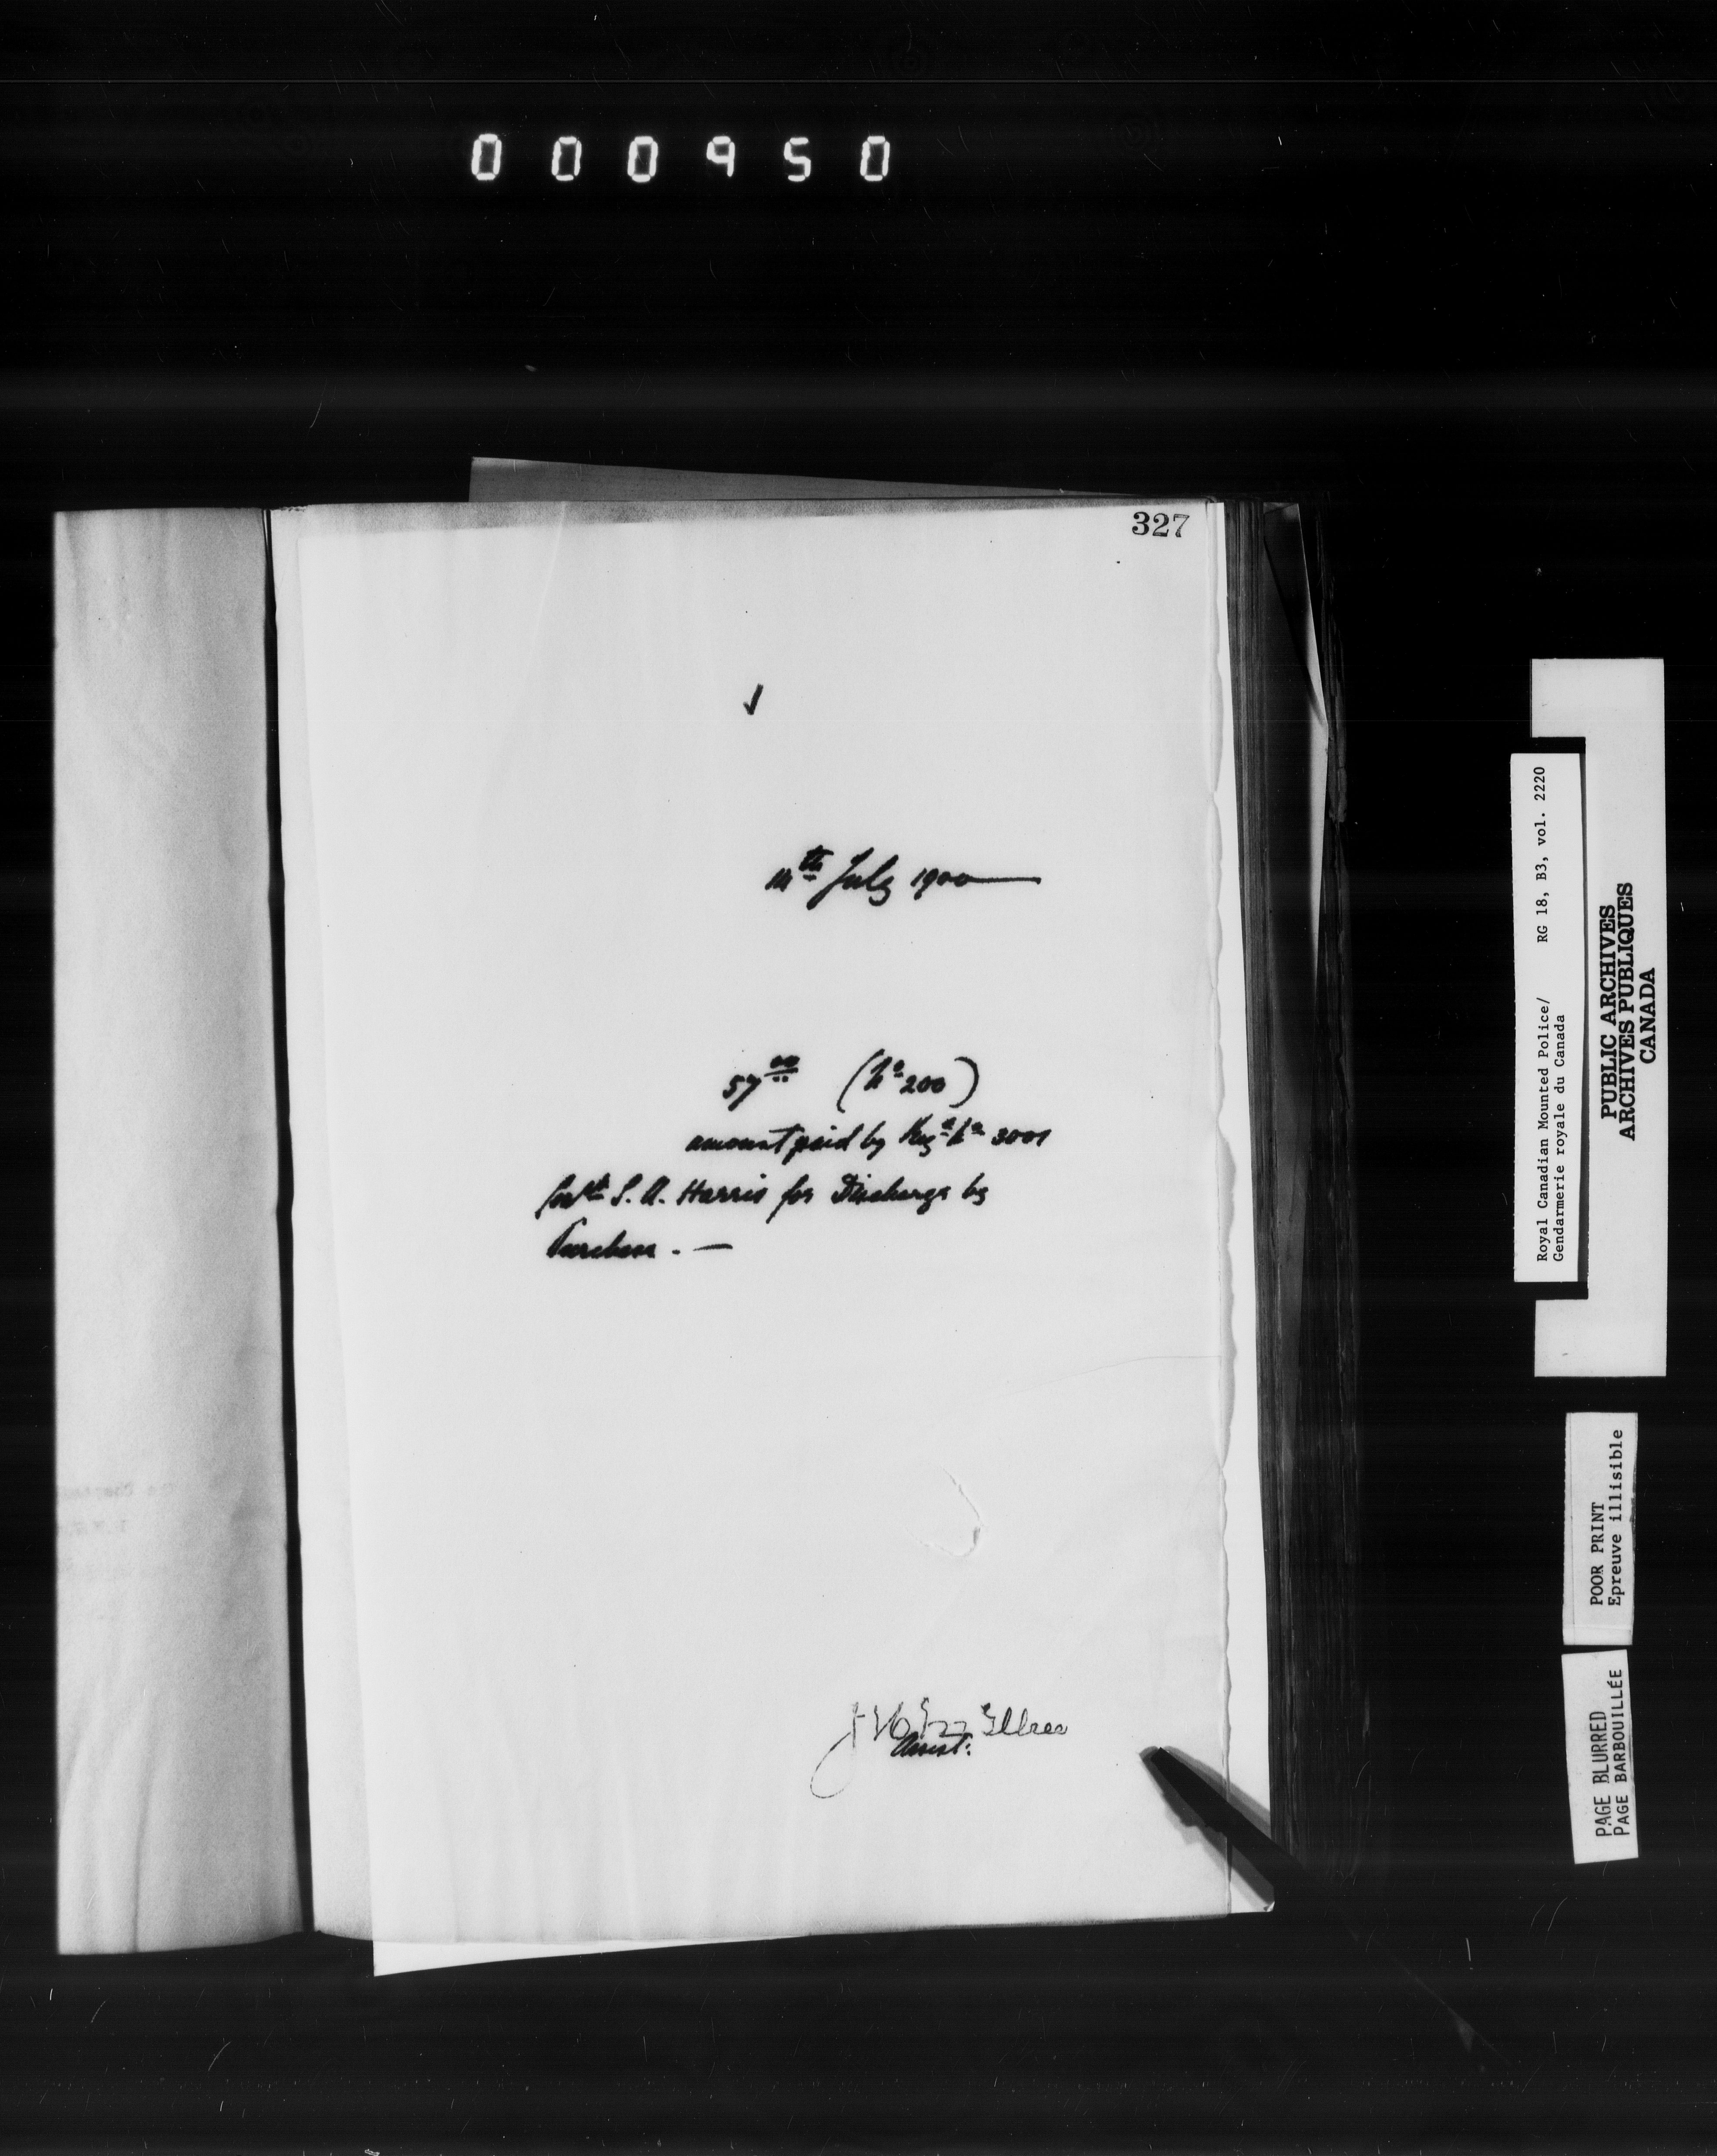 000950
327
✓
14th July 1900
57 00 (No 200)
amount paid by Reg. No 3001
Const. S. A. Harris for Discharge by
Purchase. —
Assist:
Royal Canadian Mounted Police/ RG 18, B3, vol. 2220
Gendarmerie royale du Canada
PUBLIC ARCHIVES
ARCHIVES PUBLIQUES
CANADA
POOR PRINT
Epreuve illisible
PAGE BLURRED
PAGE BARBOUILLÉE